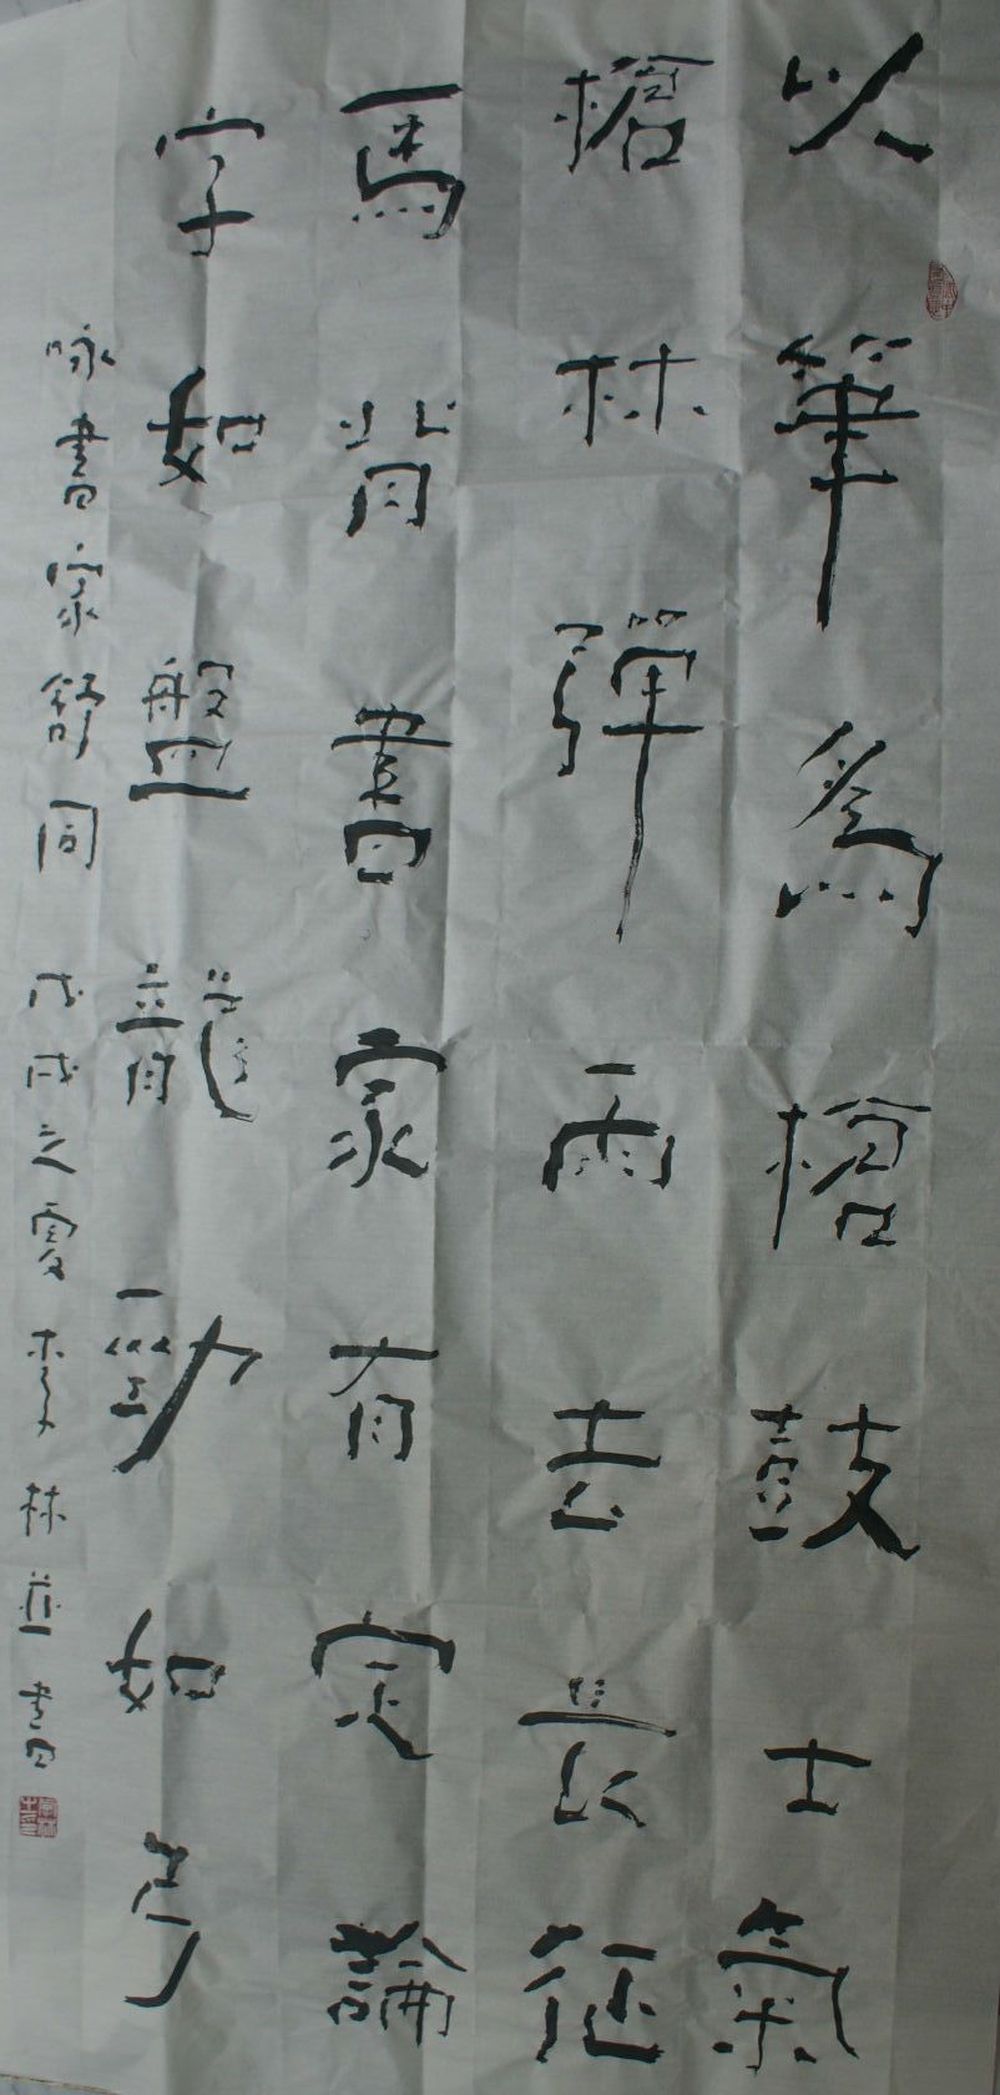 以筆為槍鼓士氣
槍林彈雨去長征
馬背書家有定論
字如盤龍勁如弓
咏書家舒同 戊戌之夏李林並書